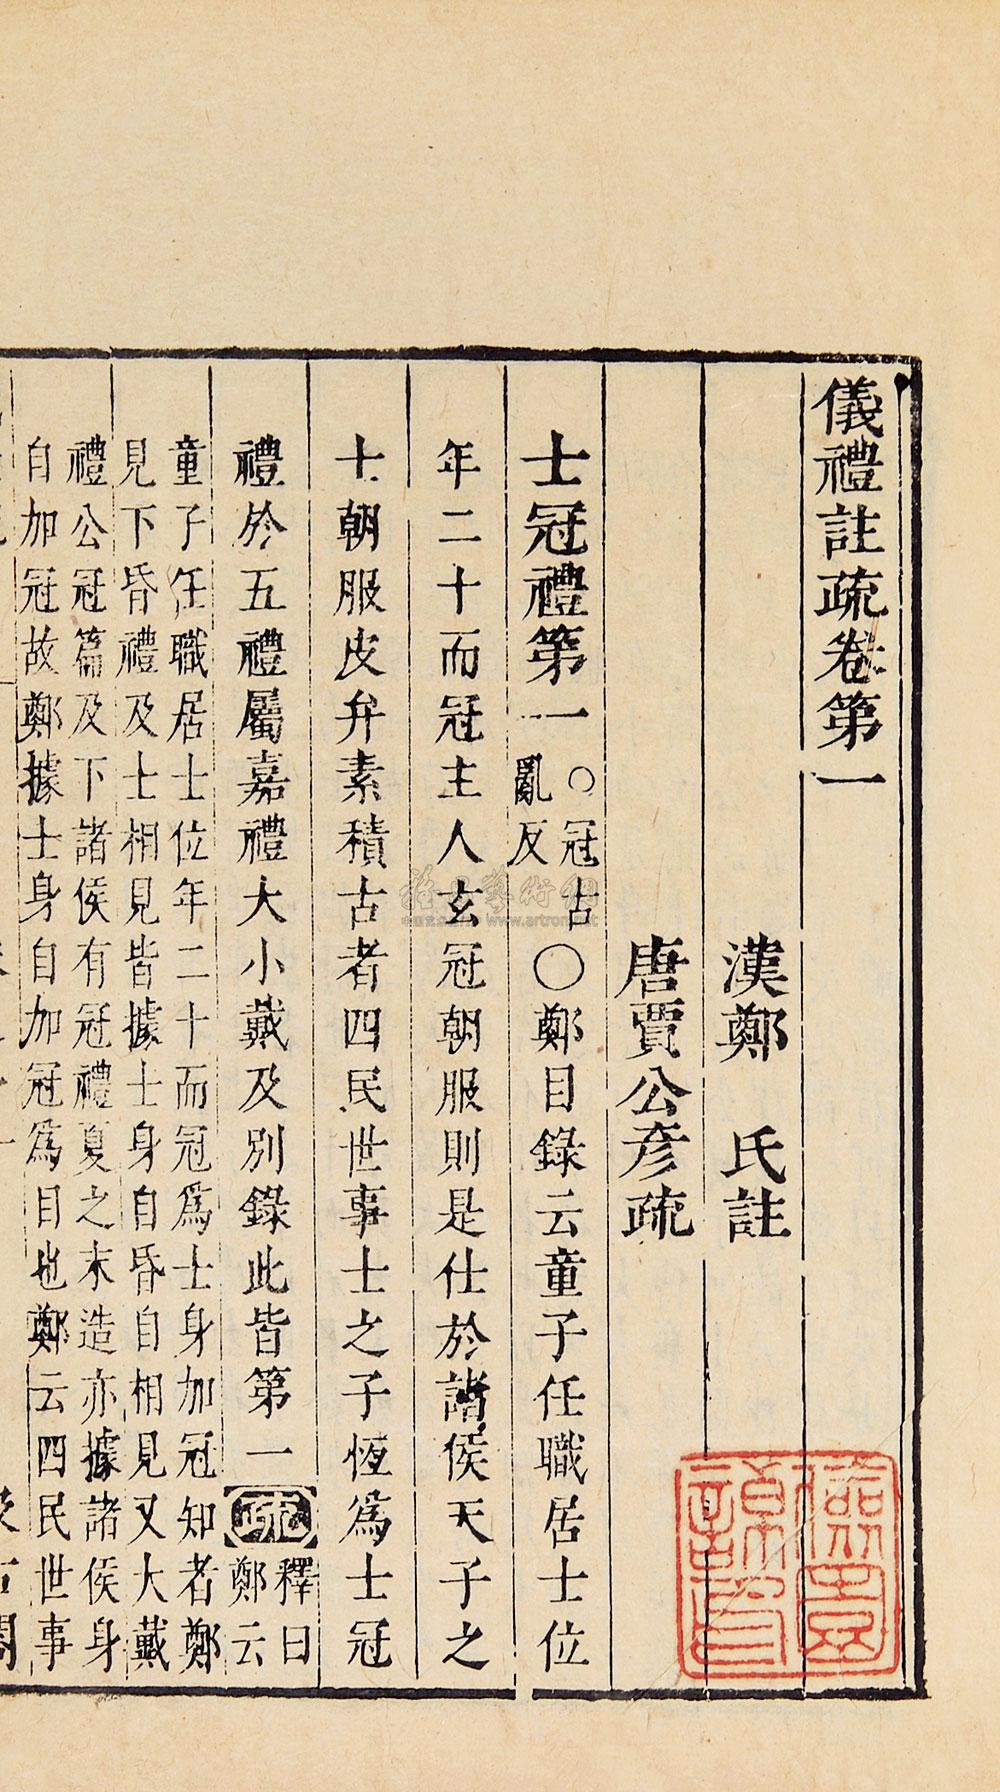 儀禮註疏卷第一
漢鄭　氏註
唐賈公彥疏
士冠禮第一○冠古亂反○鄭目錄云童子任職居士位
年二十而冠主人玄冠朝服則是仕於諸侯天子之
士朝服皮弁素積古者四民世事士之子恆為士冠
禮於五禮屬嘉禮大小戴及別錄此皆第一疏釋曰鄭云
童子任職居士位年二十而冠爲士身加冠知者鄭
見下昏禮及士相見皆據士身自昏自相見又大戴
禮公冠篇及下諸侯有冠禮夏之末造亦據諸侯身
自加冠故鄭據士身自加冠爲目也鄭云四民世事
www.artron.net